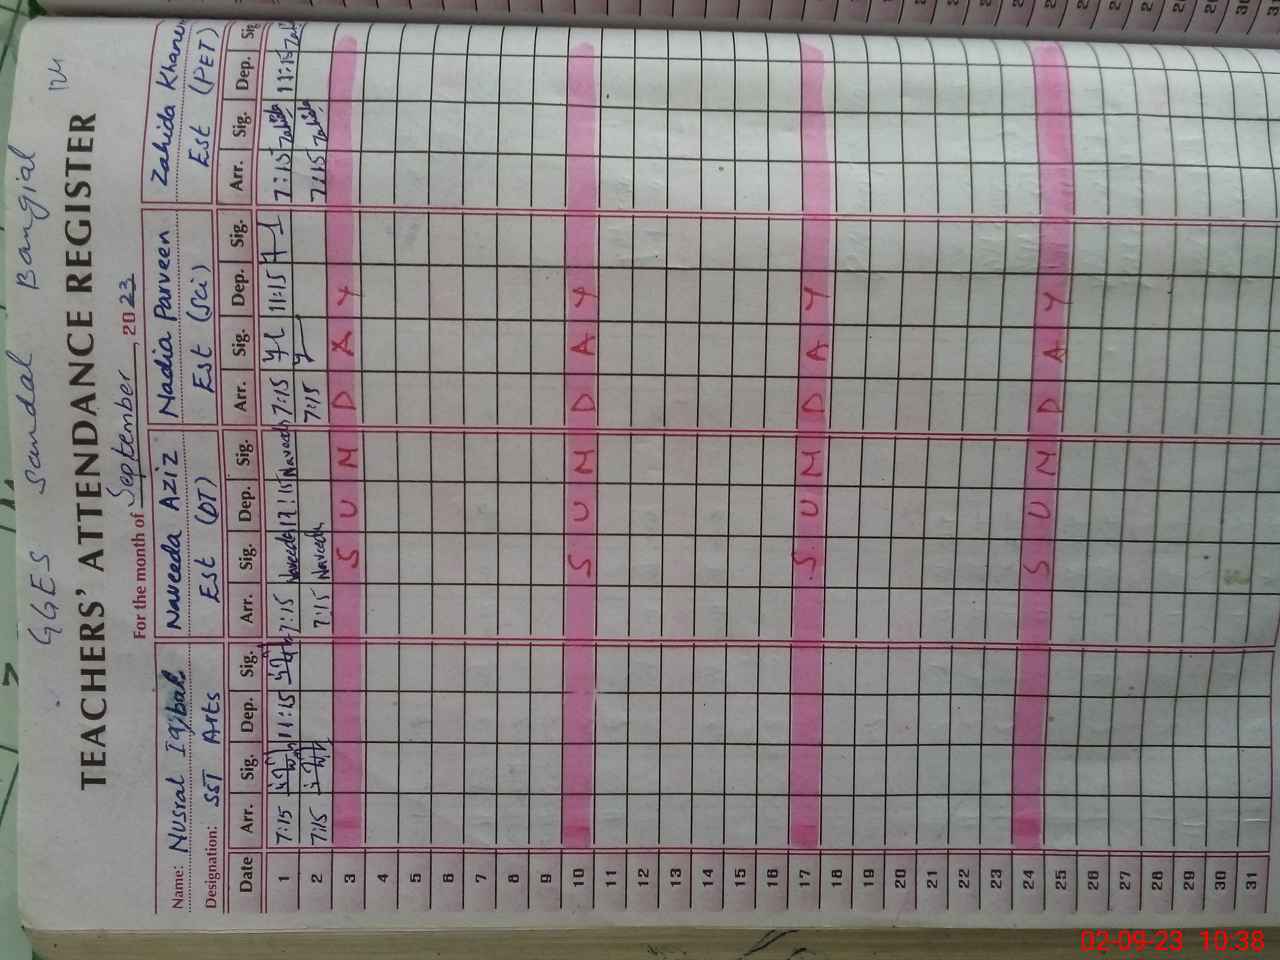 GGES Sandal Bangial
124
TEACHERS' ATTENDANCE REGISTER
For the month of September, 2023
Name: Nusrat Iqbal Naveeda Aziz Nadia Parveen Zahida Khanem
Designation: SST Arts Est (DT) Est (Sci) Est (PET)
Date Arr. Sig. Dep. Sig. Arr. Sig. Dep. Sig. Arr. Sig. Dep. Sig. Arr. Sig. Dep. Sig
1 7:15 11:15 7:15 Naveeda 12:15 Naveeda 7:15 11:15 7:15 Zahida 11:15
2 7:15 7:15 Naveeda 7:15 7:15 Zahida
3 S U N D A Y
4
5
6
7
8
9
10 S U N D A Y
11
12
13
14
15
16
17 S U N D A Y
18
19
20
21
22
23
24 S U N D A Y
25
26
27
28
29
30
31
02-09-23 10:38